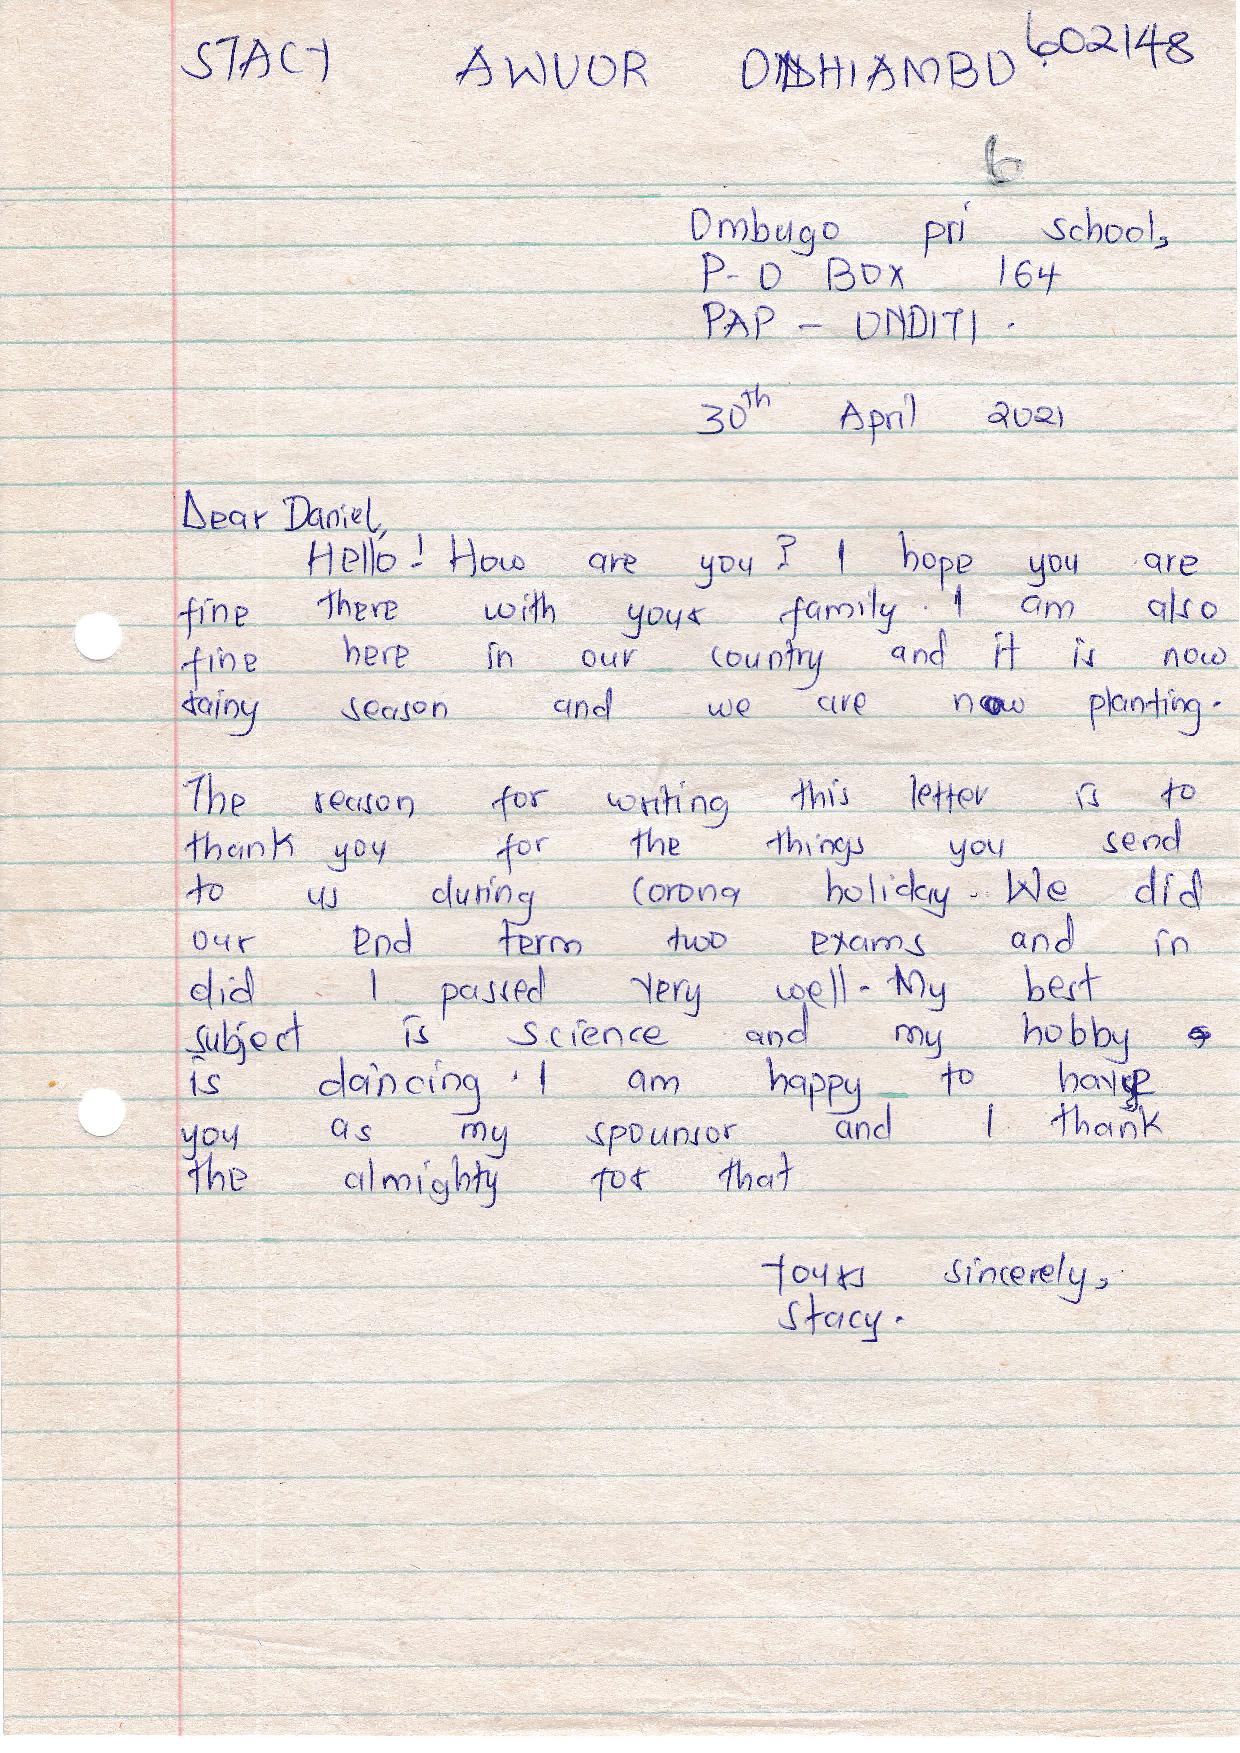 STACY AWUOR ODHIAMBO 602148
6
Ombugo pri school,
P-O BOX 164
PAP - ONDITI.
30th April 2021
Dear Daniel,
Hello! How are you? I hope you are
fine there with your family. I am also
fine here in our country and it is now
rainy season and we are now planting.
The reason for writing this letter is to
thank you for the things you send
to us during corona holiday. We did
our end term two exams and in
did I passed very well. My best
subject is science and my hobby
is dancing. I am happy to have
you as my spounsor and I thank
the almighty for that
Yours sincerely,
Stacy.